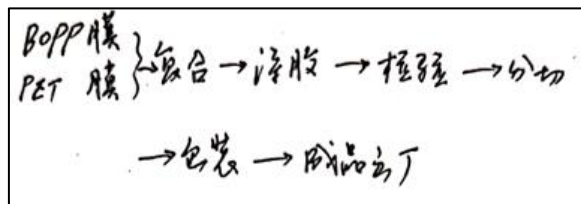 BOPP膜
PET 膜 }→复合→涂胶→检验→分切
→包装→成品出厂